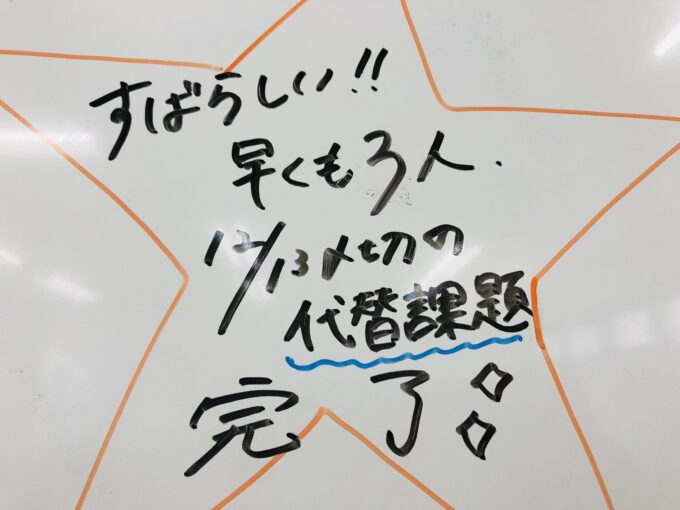 すばらしい!!
早くも3人.
12/13〆切の
代替課題
完了